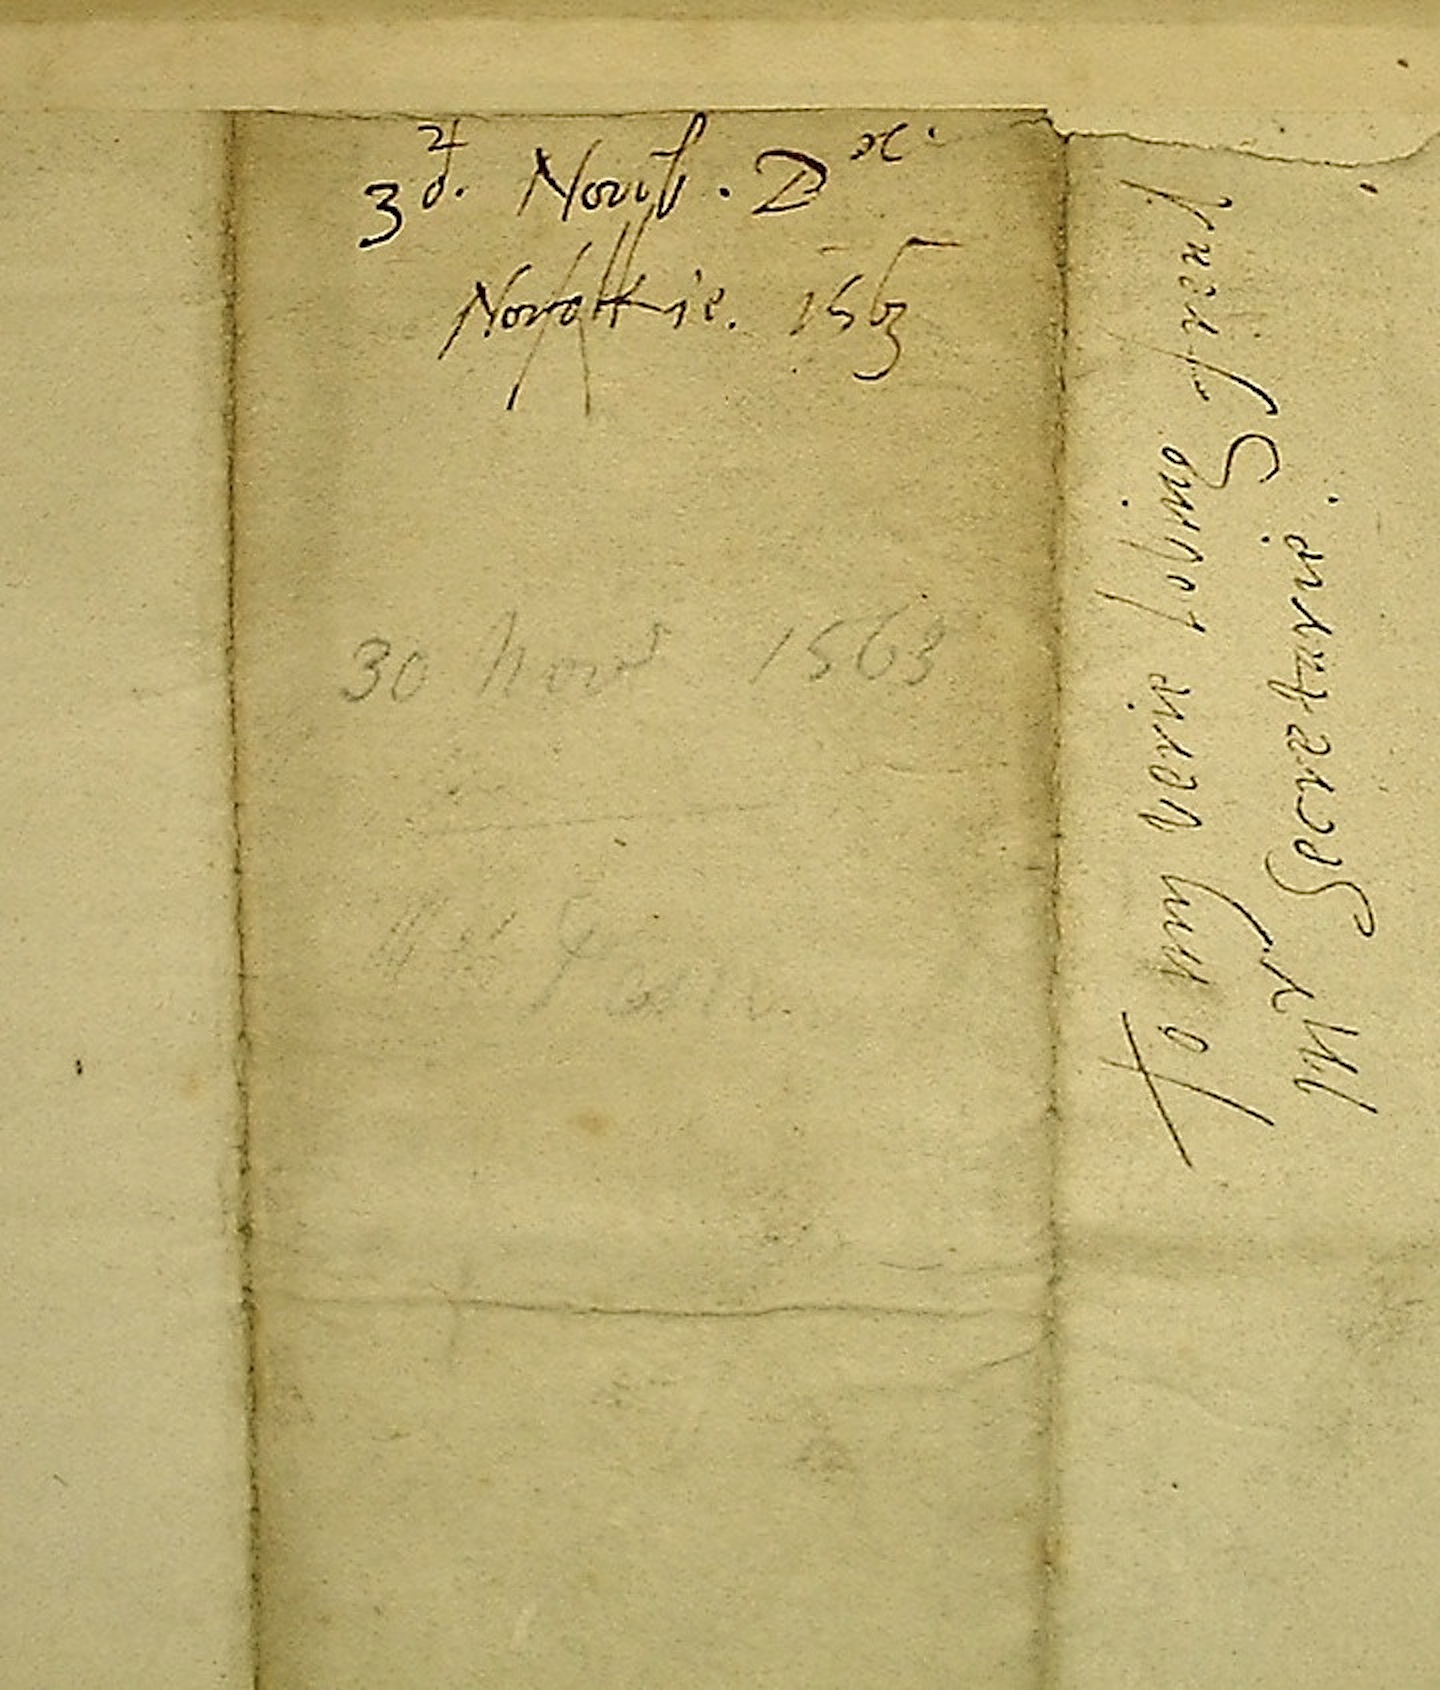 3d. Novb. Dx.
Norfolkie. 1563
30 Novr 1563
To my verie loving friend
Mr Secretarie.